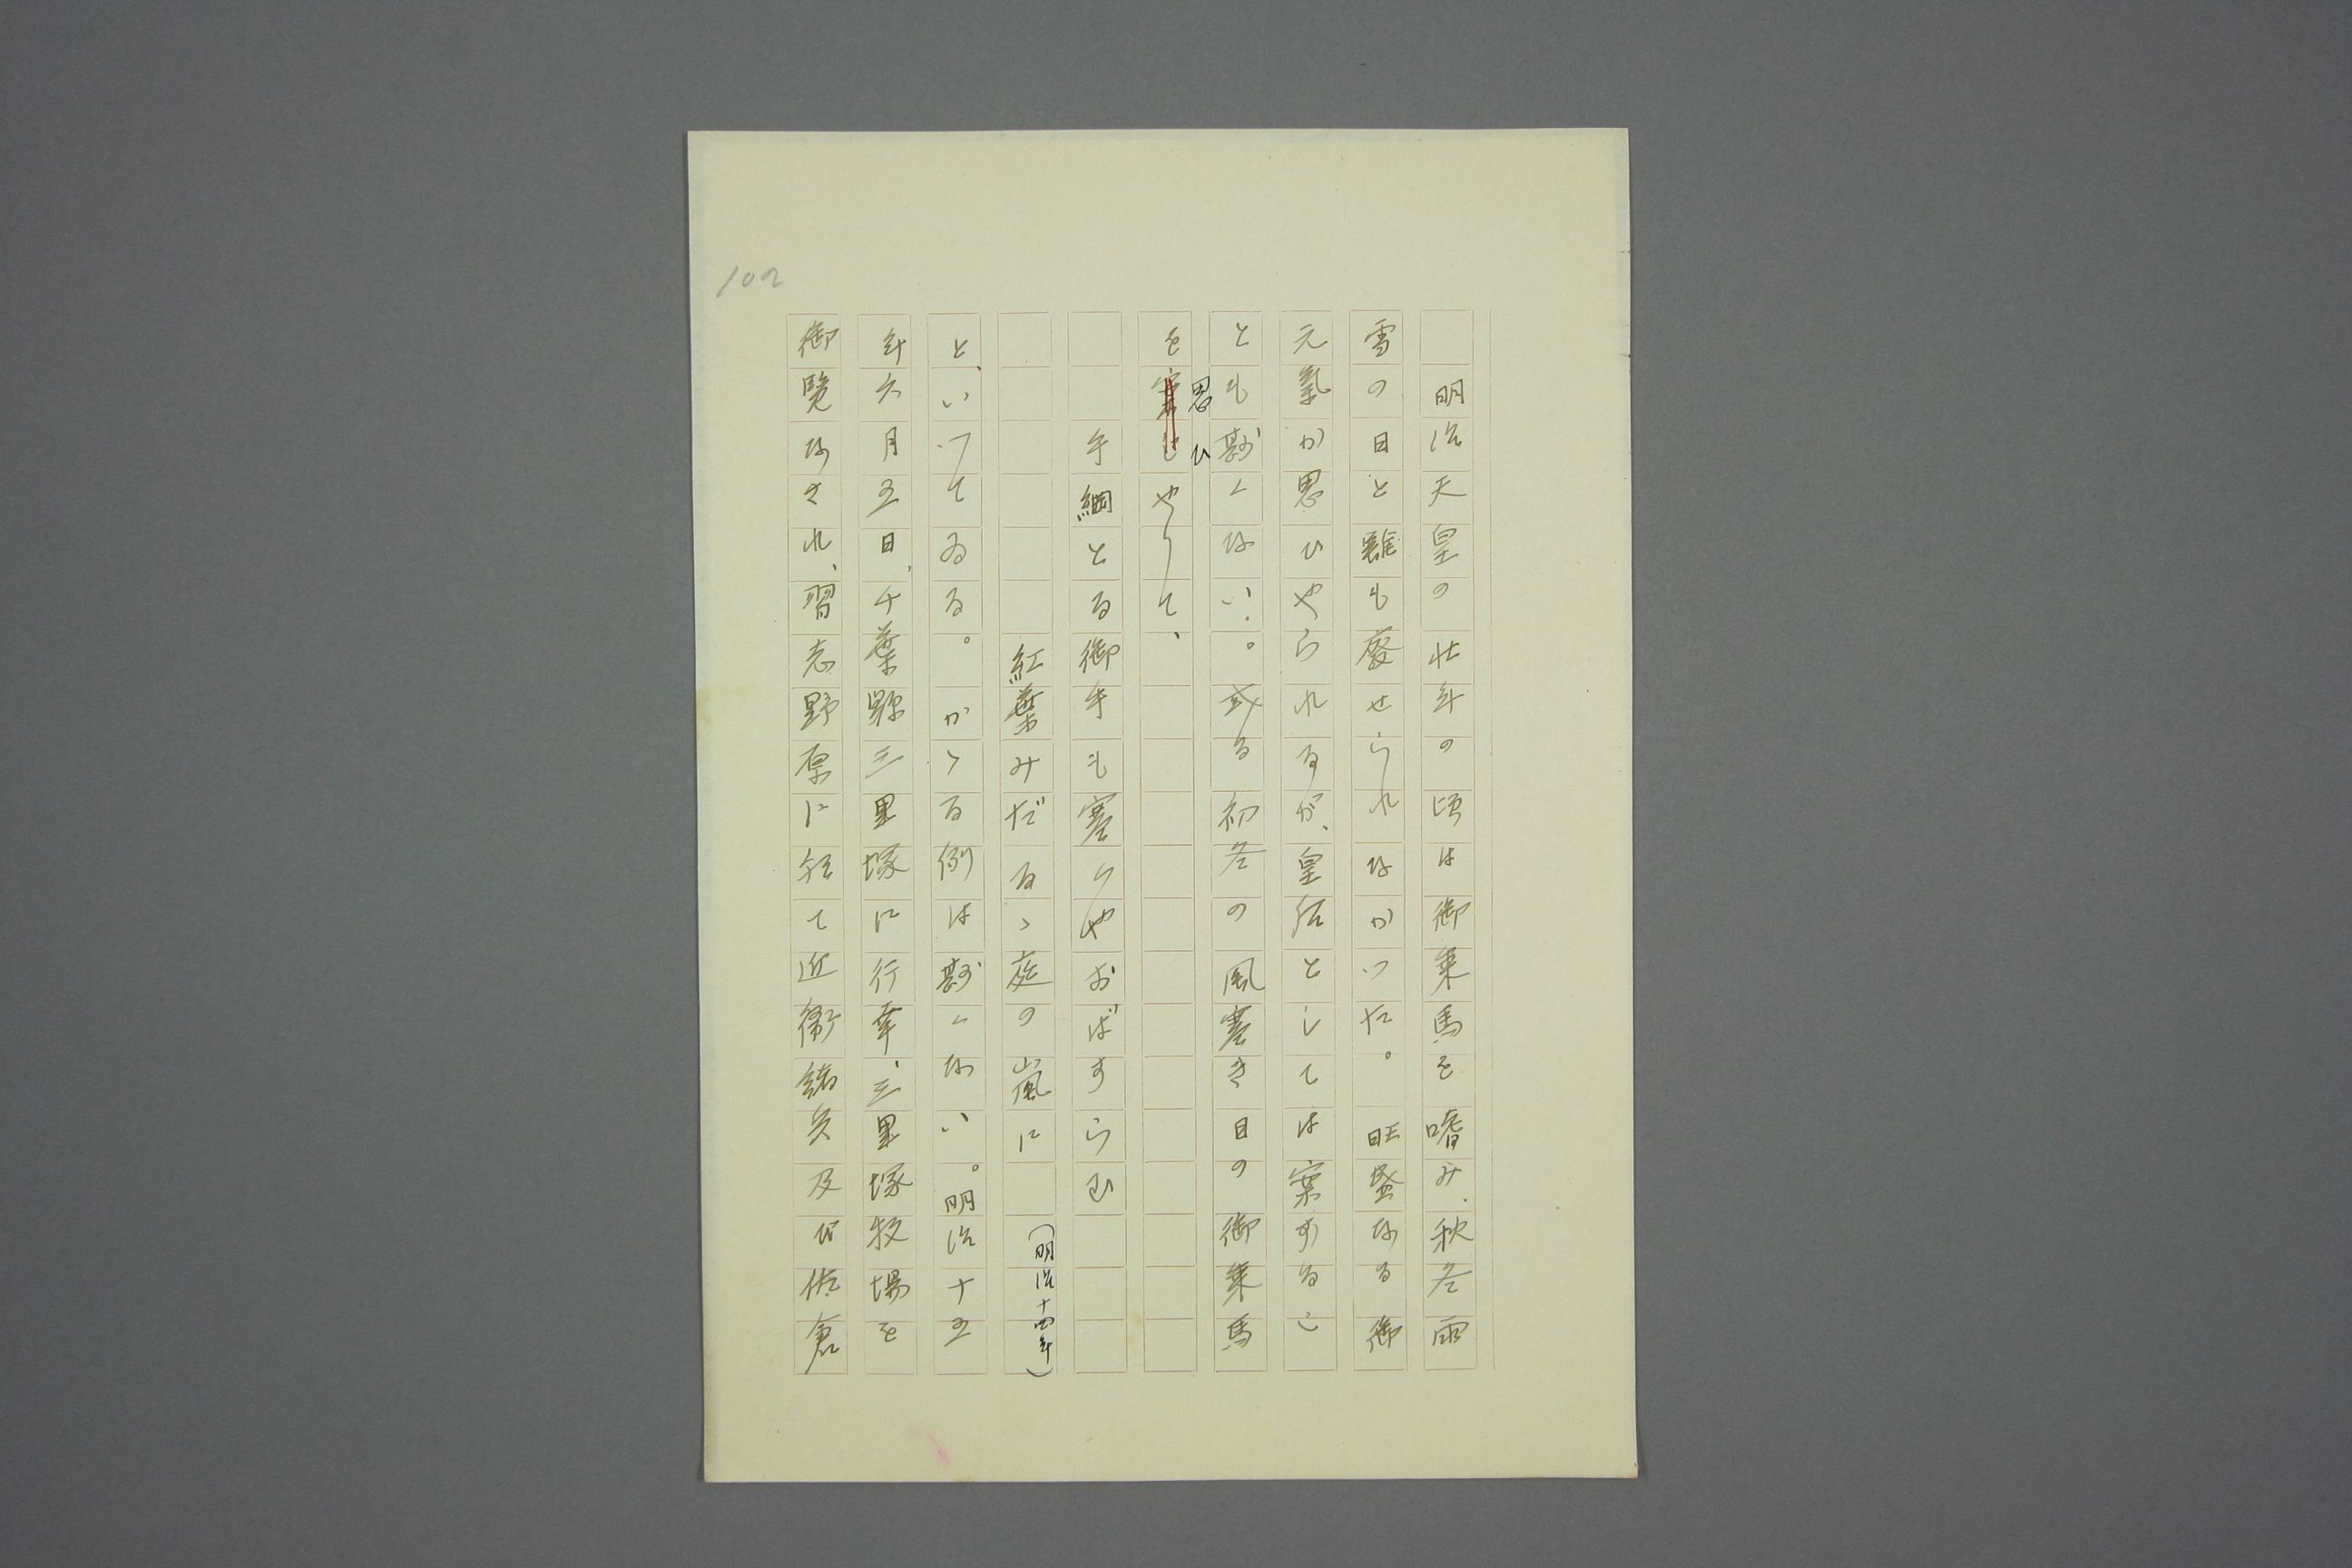 102
明治天皇の壮年の頃は御乗馬を嗜み、秋冬雨
雪の日と雖も廃せられなかつた。旺盛なる御
元氣が思ひやられるが、皇后としては案するこ
とも尠くない。。或る初冬の風寒き日の御乗馬
を案じやりて、
思ひ
手綱とる御手も寒けやおばすらむ
紅葉みだるゝ庭の嵐に
(明治十四年)
と、いつてゐる。かゝる例は尠くない。明治十五
年六月五日、千葉縣三里塚に行幸、三里塚牧場を
御覧なされ、習志野原に於て近衛諸兵及び佐倉